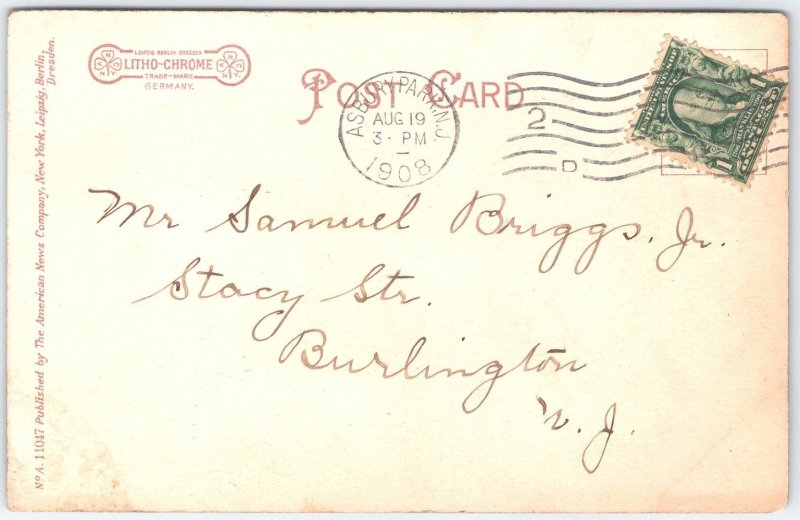 LEIPZIG BERLIN DRESDEN
LITHO-CHROME
TRADE-MARK
GERMANY.
POST CARD
ASBURY PARK, N.J.
AUG 19
3 - PM
1908
2
D
Mr Samuel Briggs, Jr.
Stacy Str.
Burlington
N. J.
No A. 11047 Published by The American News Company, New York, Leipzig, Berlin,
Dresden.